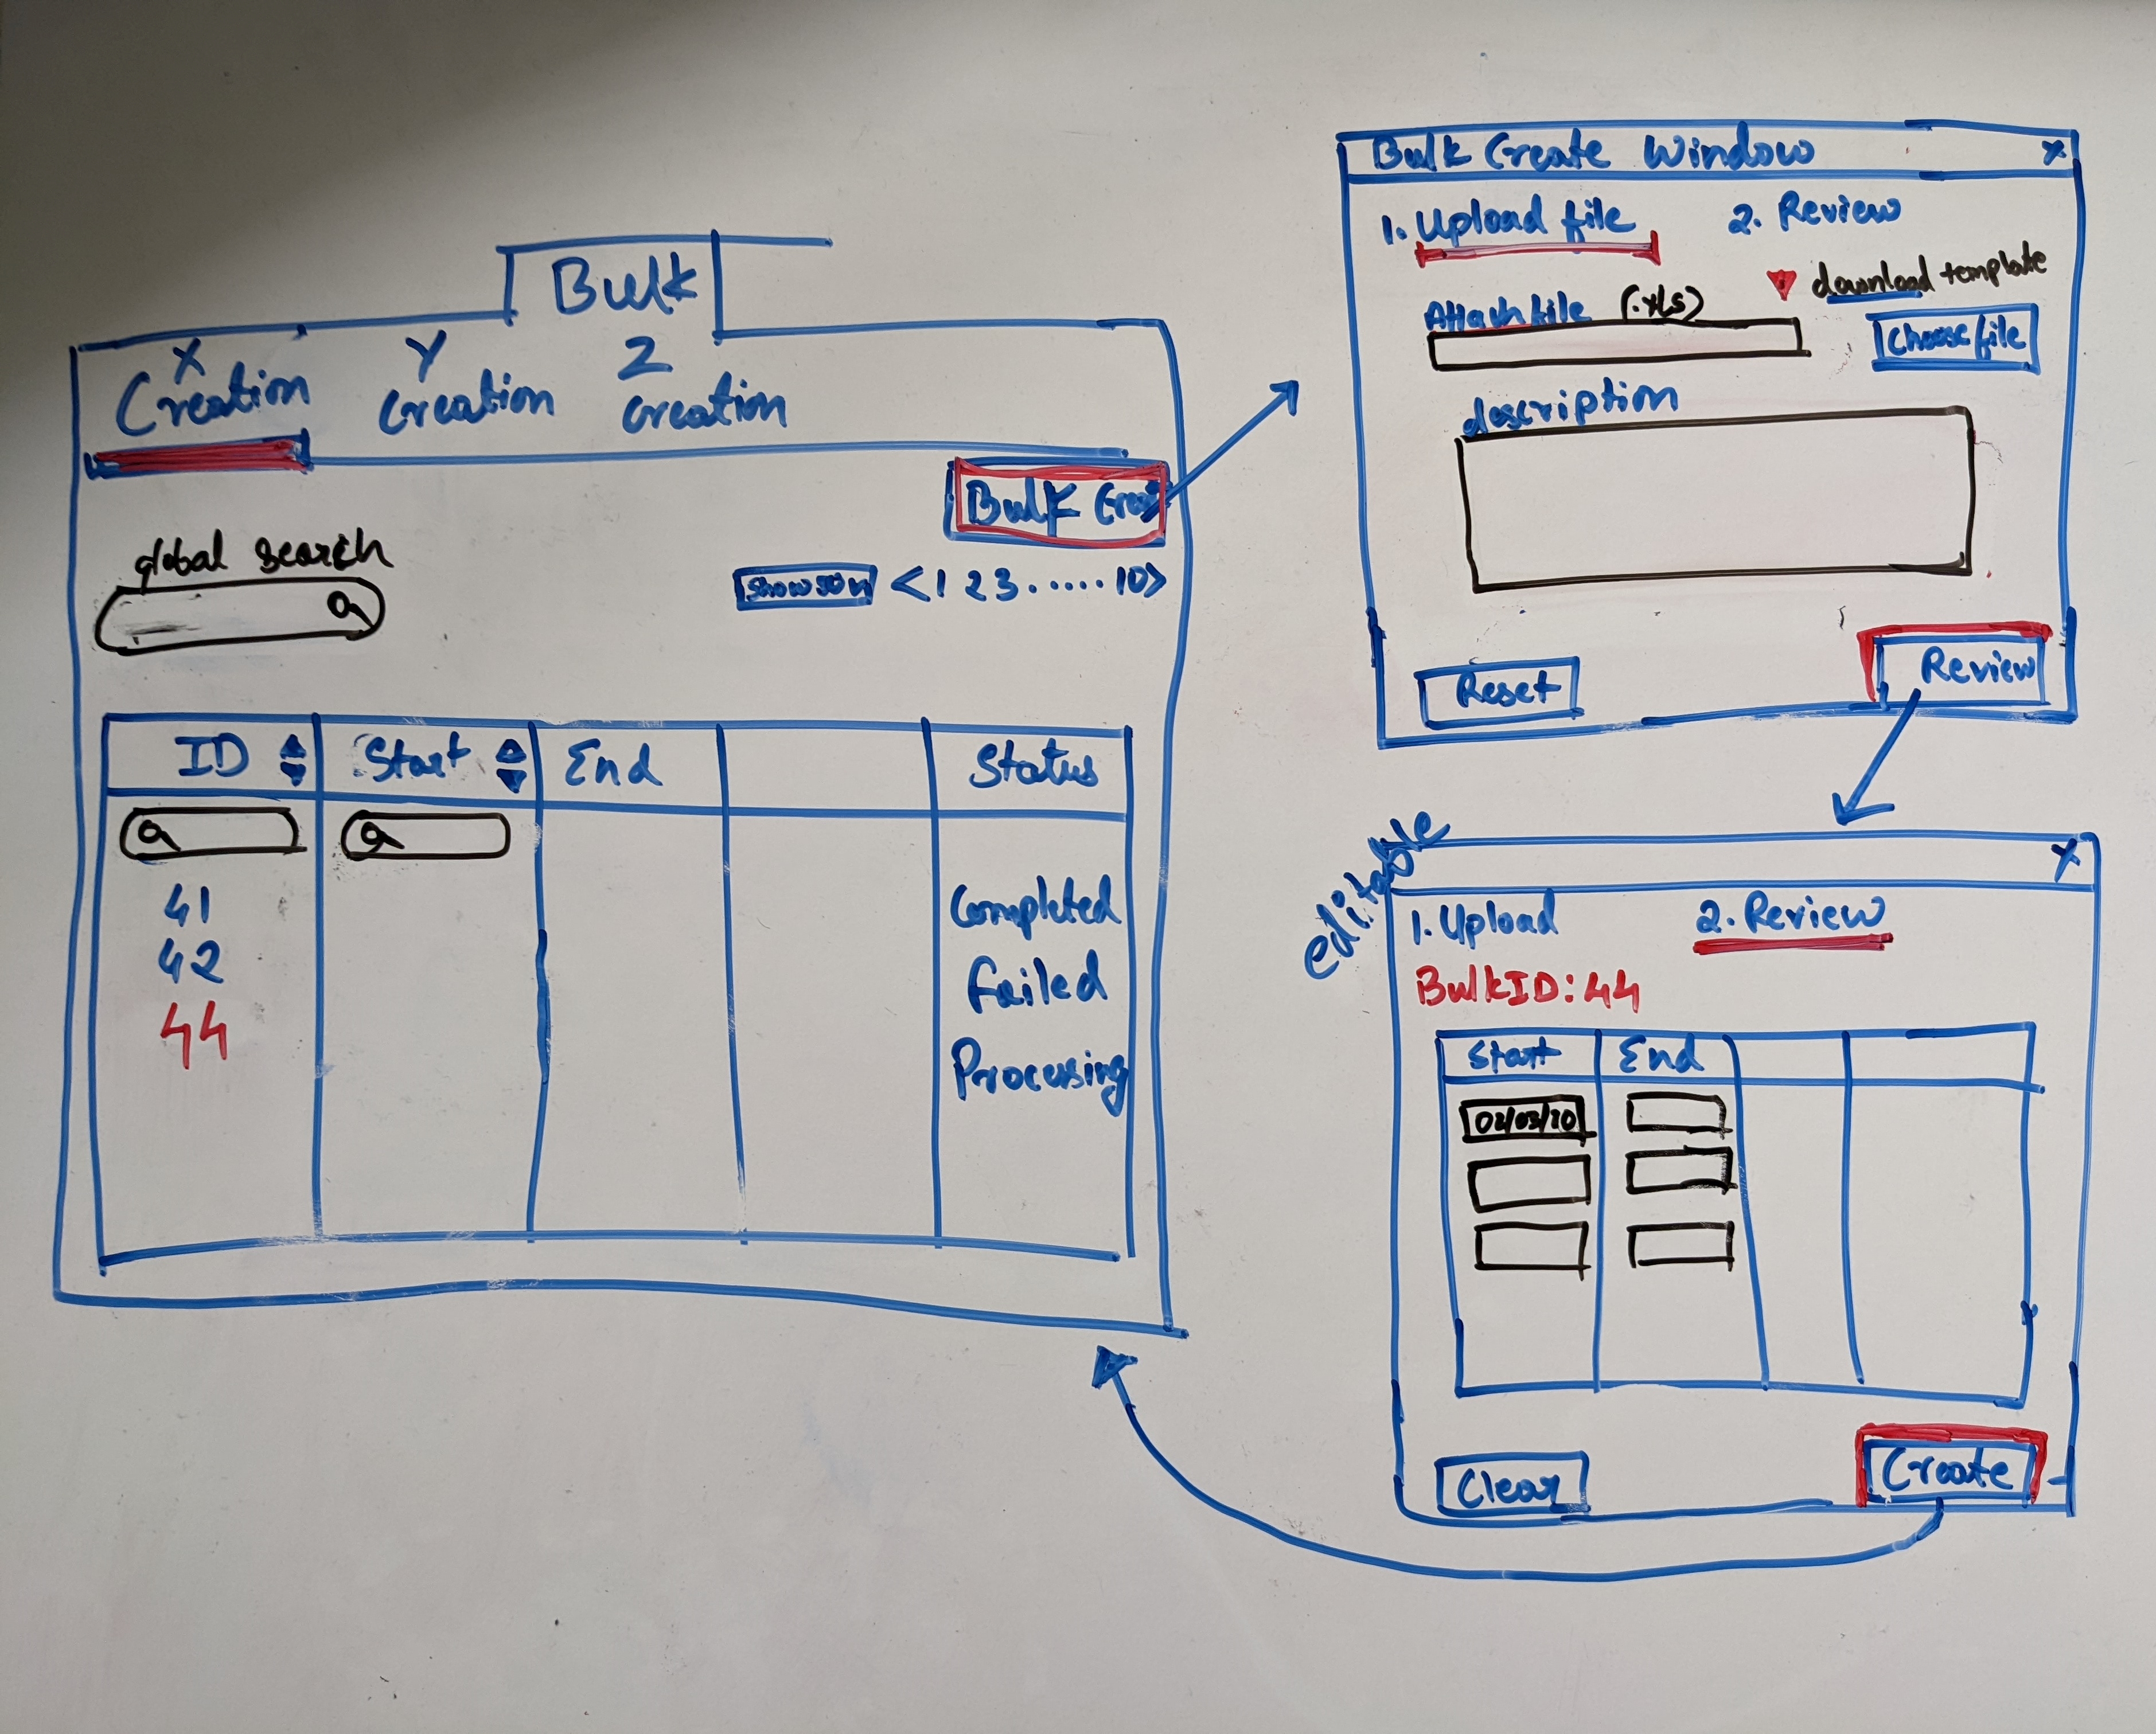 Bulk
X Y Z
Creation Creation Creation
Bulk Crea
global search
< 1 2 3 ..... 10 >
ID Start End Status
41 Completed
42 Failed
44 Processing
Bulk Create Window x
1. Upload file 2. Review
download template
Attach file (.xls)
Choose file
description
Reset Review
editable
x
1. Upload 2. Review
BulkID: 44
Start End
02/03/20
Clear Create